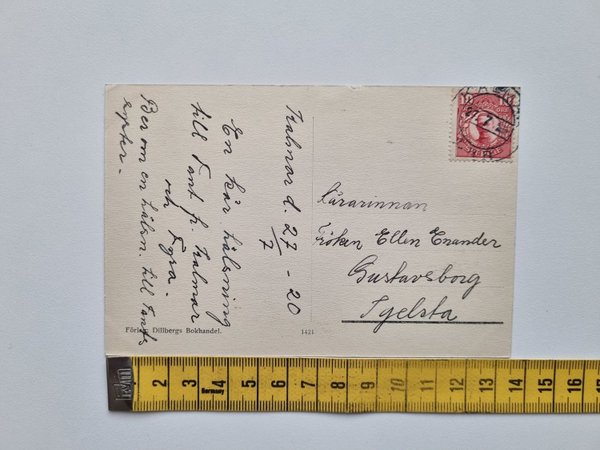 Kalmar d. 27/7 - 20
En kär hälsning
till Tant fr. Kalmar
och Fyra.
Ber om en hälsn. till Tants
syster.
Lärarinnan
Fröken Ellen Enander
Gustavsborg
Tjelsta
Förlag Dillbergs Bokhandel.
1421
10
2 3 4 5 6 7 8 9 10 11 12 13 14 15 16 17
Germany